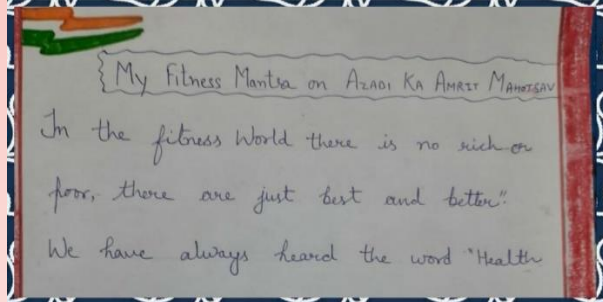 My Fitness Mantra on AZADI KA AMRIT MAHOTSAV
In the fitness World there is no rich or
poor, there are just best and better".
We have always heard the word "Health